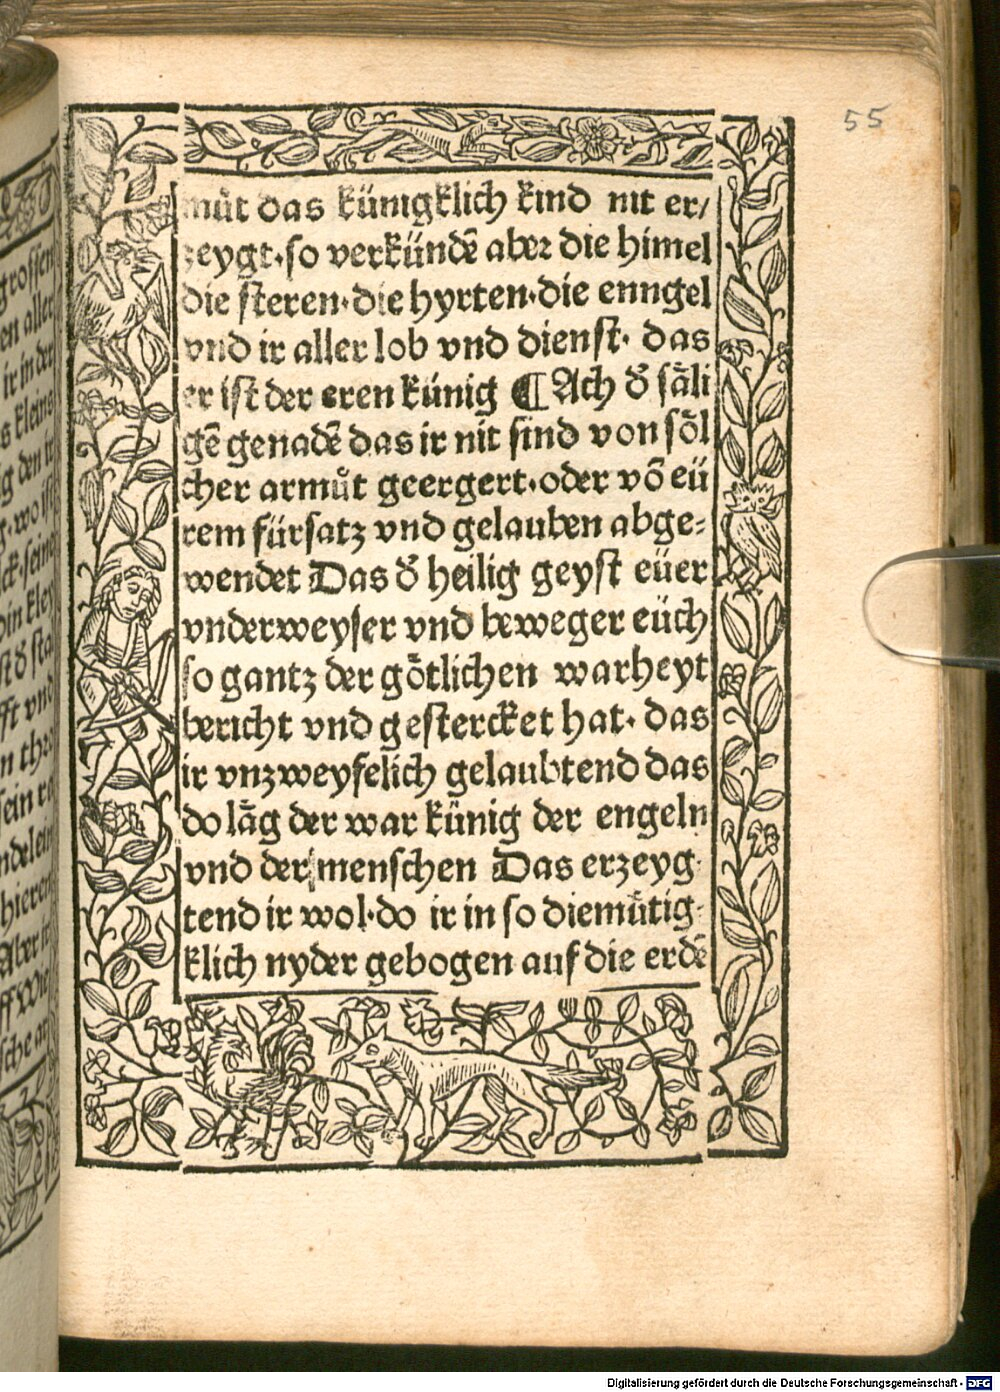 55
můt das künigklich kind nit er/
zeygt·so verkündẽ aber die himel
die steren·die hyrten·die enngel
vnd ir aller lob vnd dienst· das
er ist der eren künig ¶ Ach d̕ sãli
gẽ genadẽ das ir nit sind von söl
cher armůt geergert·oder võ eü
rem fürsatz vnd gelauben abge⸗
wendet Das d̕ heilig geyst eüer
vnderweyser vnd beweger eüch
so gantz der götlichen warheyt
bericht vnd gestercket hat· das
ir vnzweyfelich gelaubtend das
do lãg der war künig der engeln
vnd der menschen Das erzeyg⸗
tend ir wol·do ir in so diemütig⸗
klich nyder gebogen auf die erdẽ
grossen
en aller
ir in der
s kleins
Digitalisierung gefördert durch die Deutsche Forschungsgemeinschaft - DFG